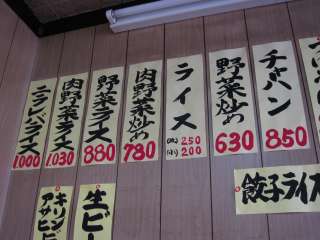 ニラレバライス
1000
肉野菜ライス
1,030
野菜ライス
880
肉野菜炒め
780
ライス
(大) 250
(小) 200
野菜炒め
630
チャーハン
850
餃子ライス
生ビー
キリン
アサヒビ